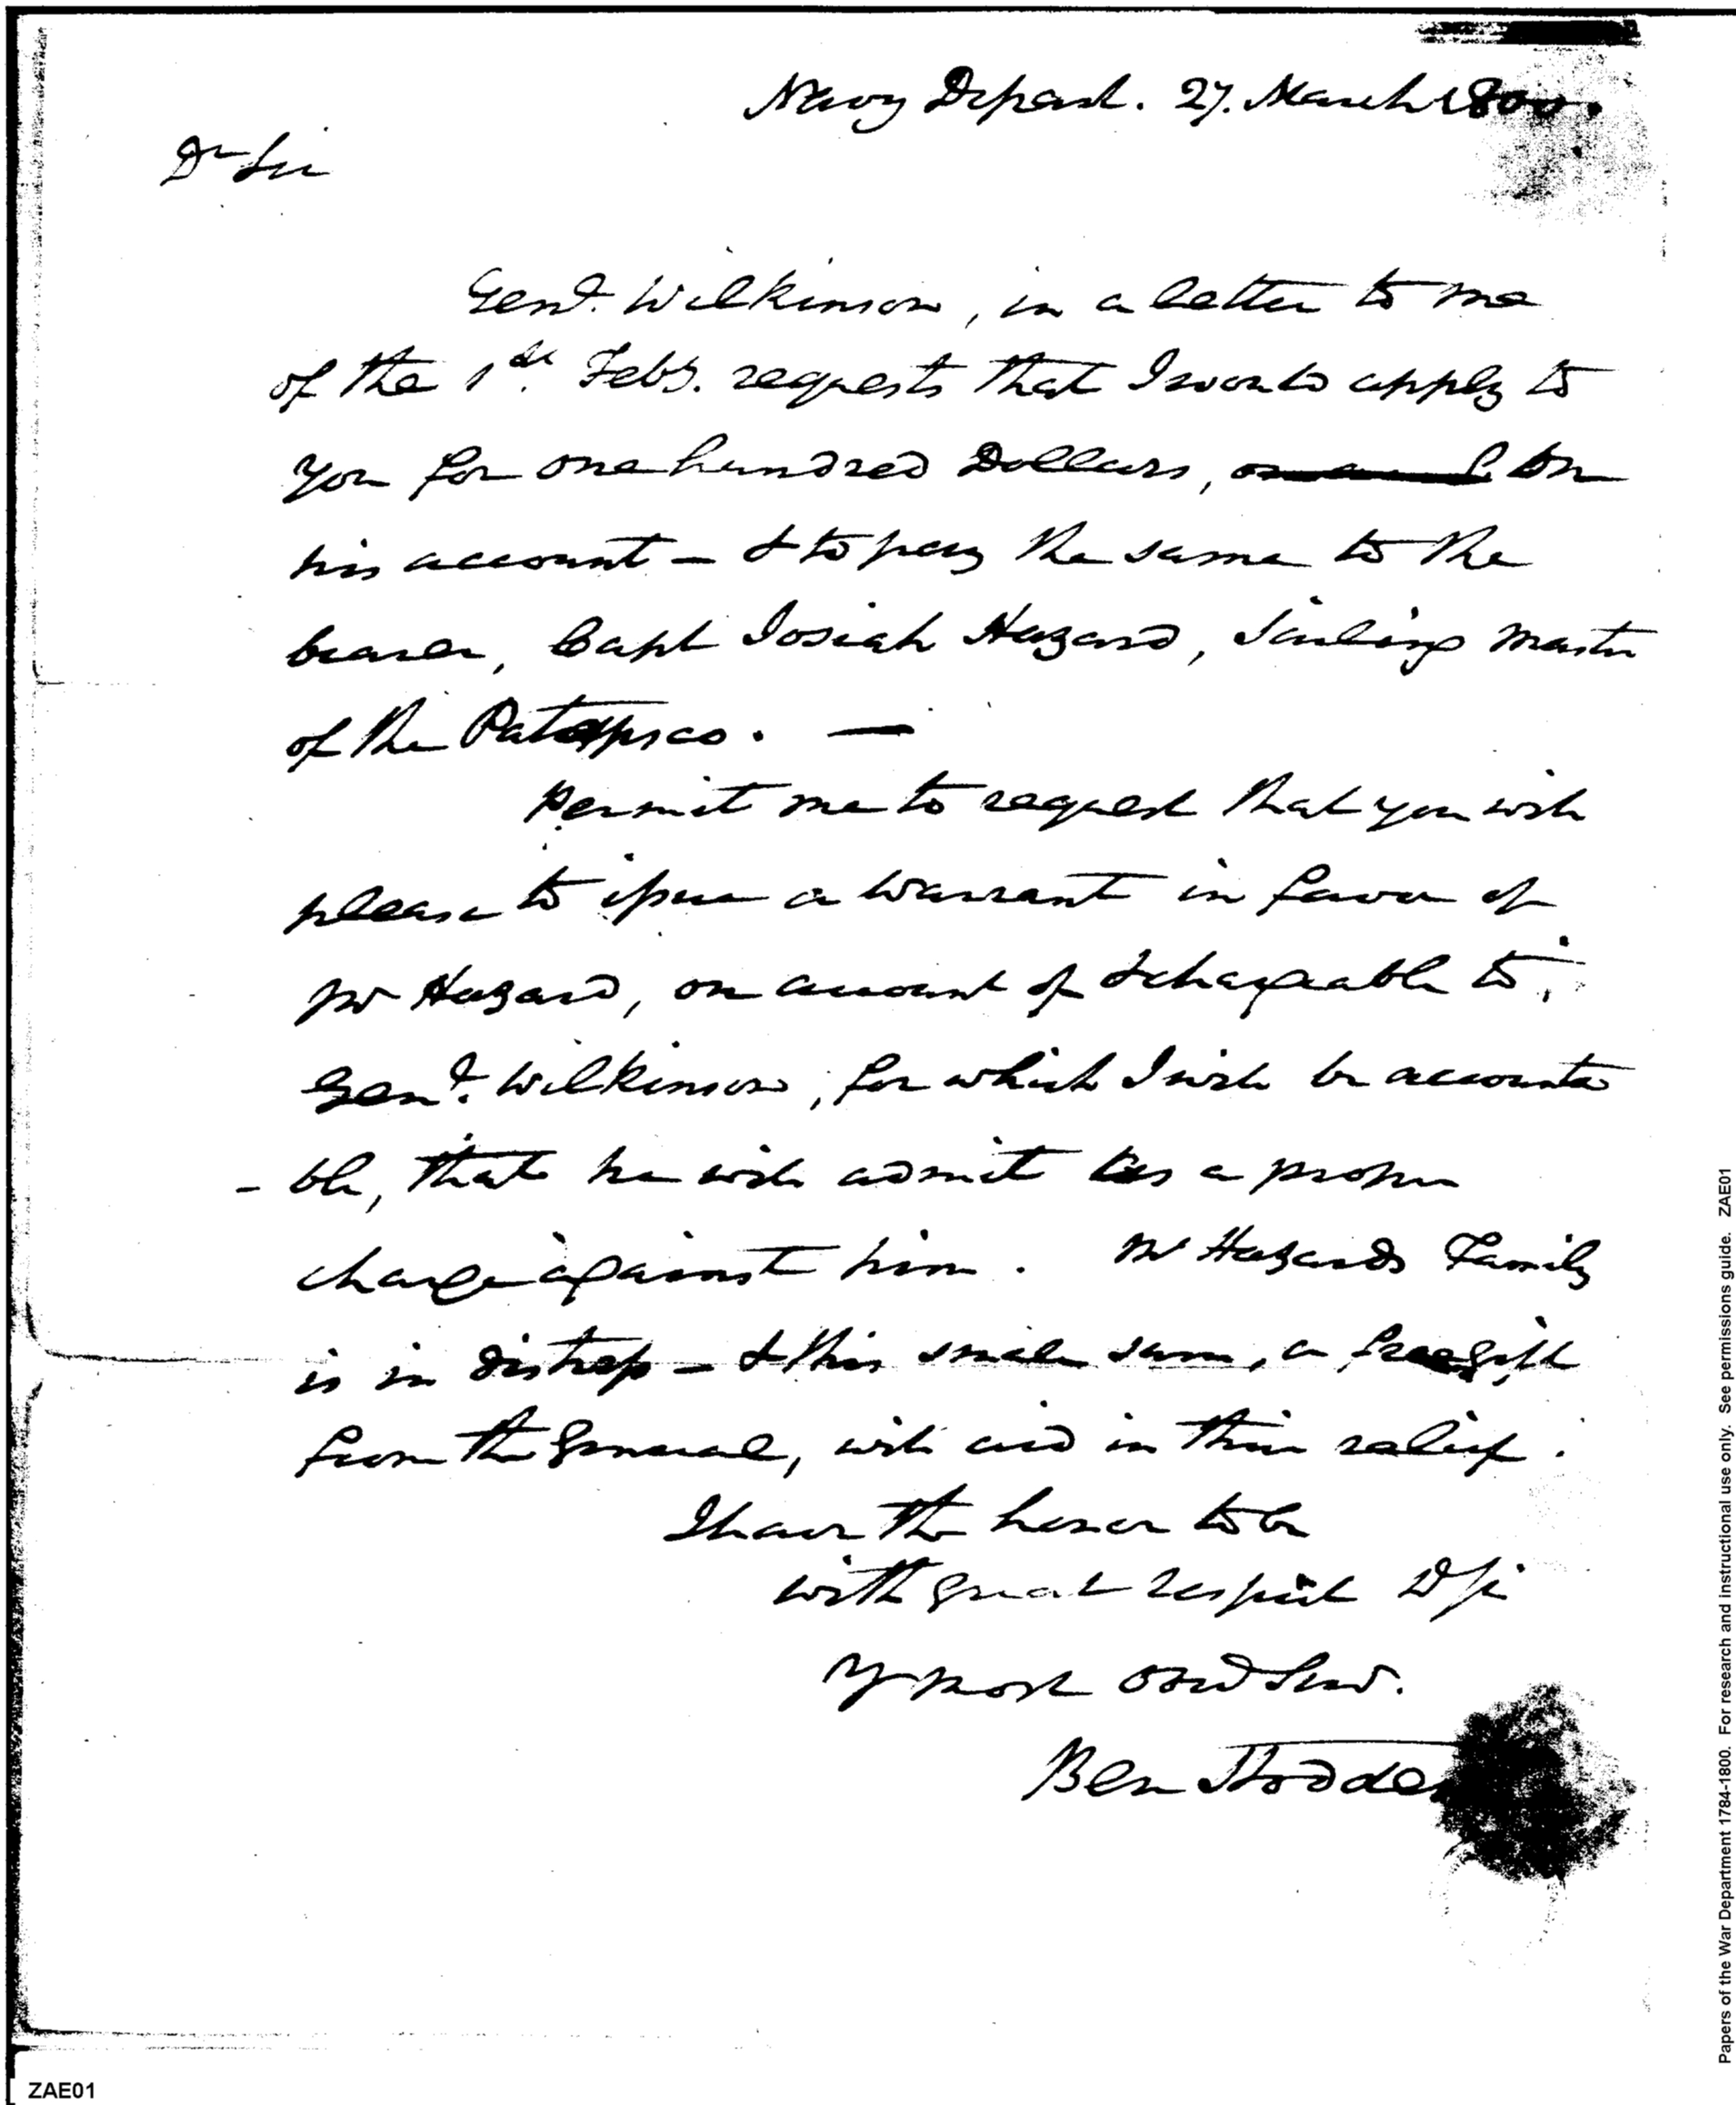 Navy Depart. 27. March 1800.
Dr Sir
Genl. Wilkinson, in a letter to me
of the 1st. Feby. requests that I would apply to
you for one hundred Dollars, on
his account – & to pay the same to the
bearer, Capt Josiah Hazard, Sailing Master
of the Patapsco. —
Permit me to request that you will
please to issue a Warrant in favor of
Mr Hazard, on account of & chargeable to
Genl. Wilkinson, for which I will be accounta
- ble, that he will admit as a proper
charge against him. Mr Hazards Family
is in distress – & this small sum, a free gift
from the General, will aid in their relief.
I have the honor to be
with great respect D Sir
Yr most Obed Serv.
Ben Stodde
ZAE01
Papers of the War Department 1784-1800. For research and instructional use only. See permissions guide. ZAE01